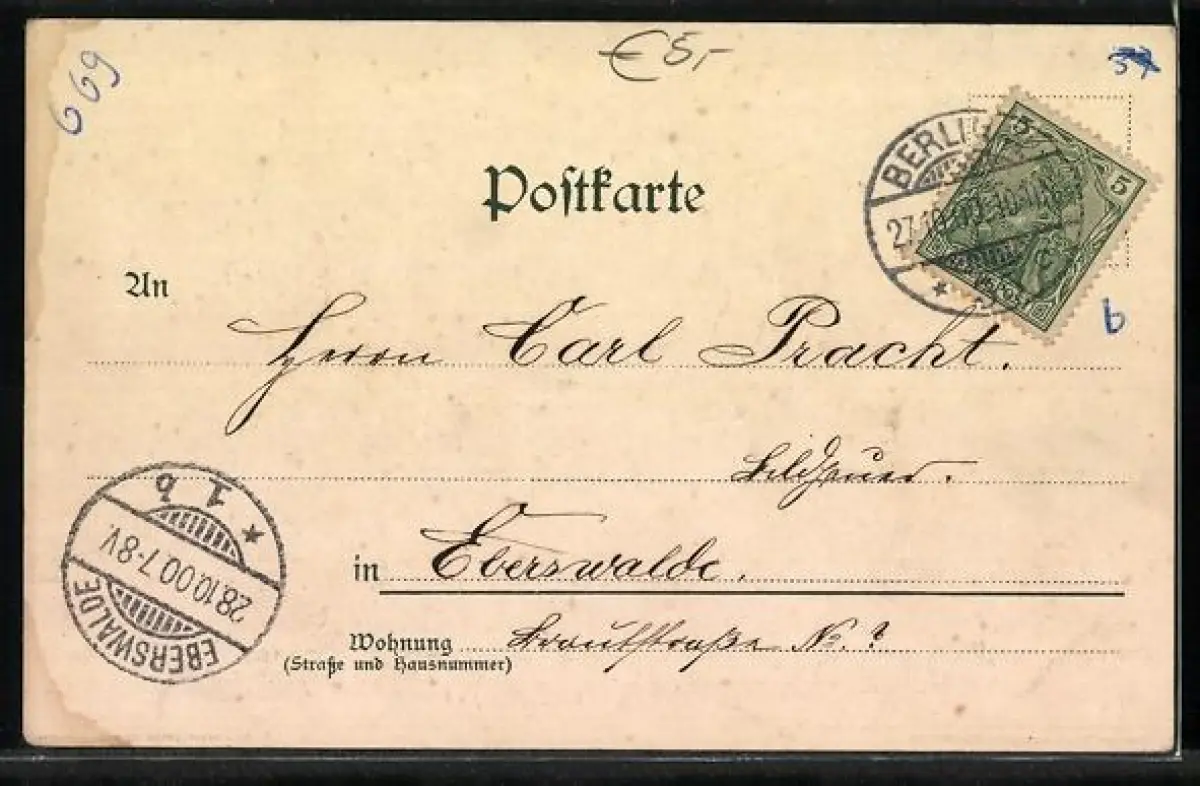 669
€5,-
37
Postkarte
BERLIN
27.10.00.10-11
5
5
An
Herrn Carl Pracht.
Bildhauer.
b
in Eberswalde.
Wohnung Brautstraße No. ?
(Straße und Hausnummer)
EBERSWALDE
28.10.00.7-8V.
* 1 b